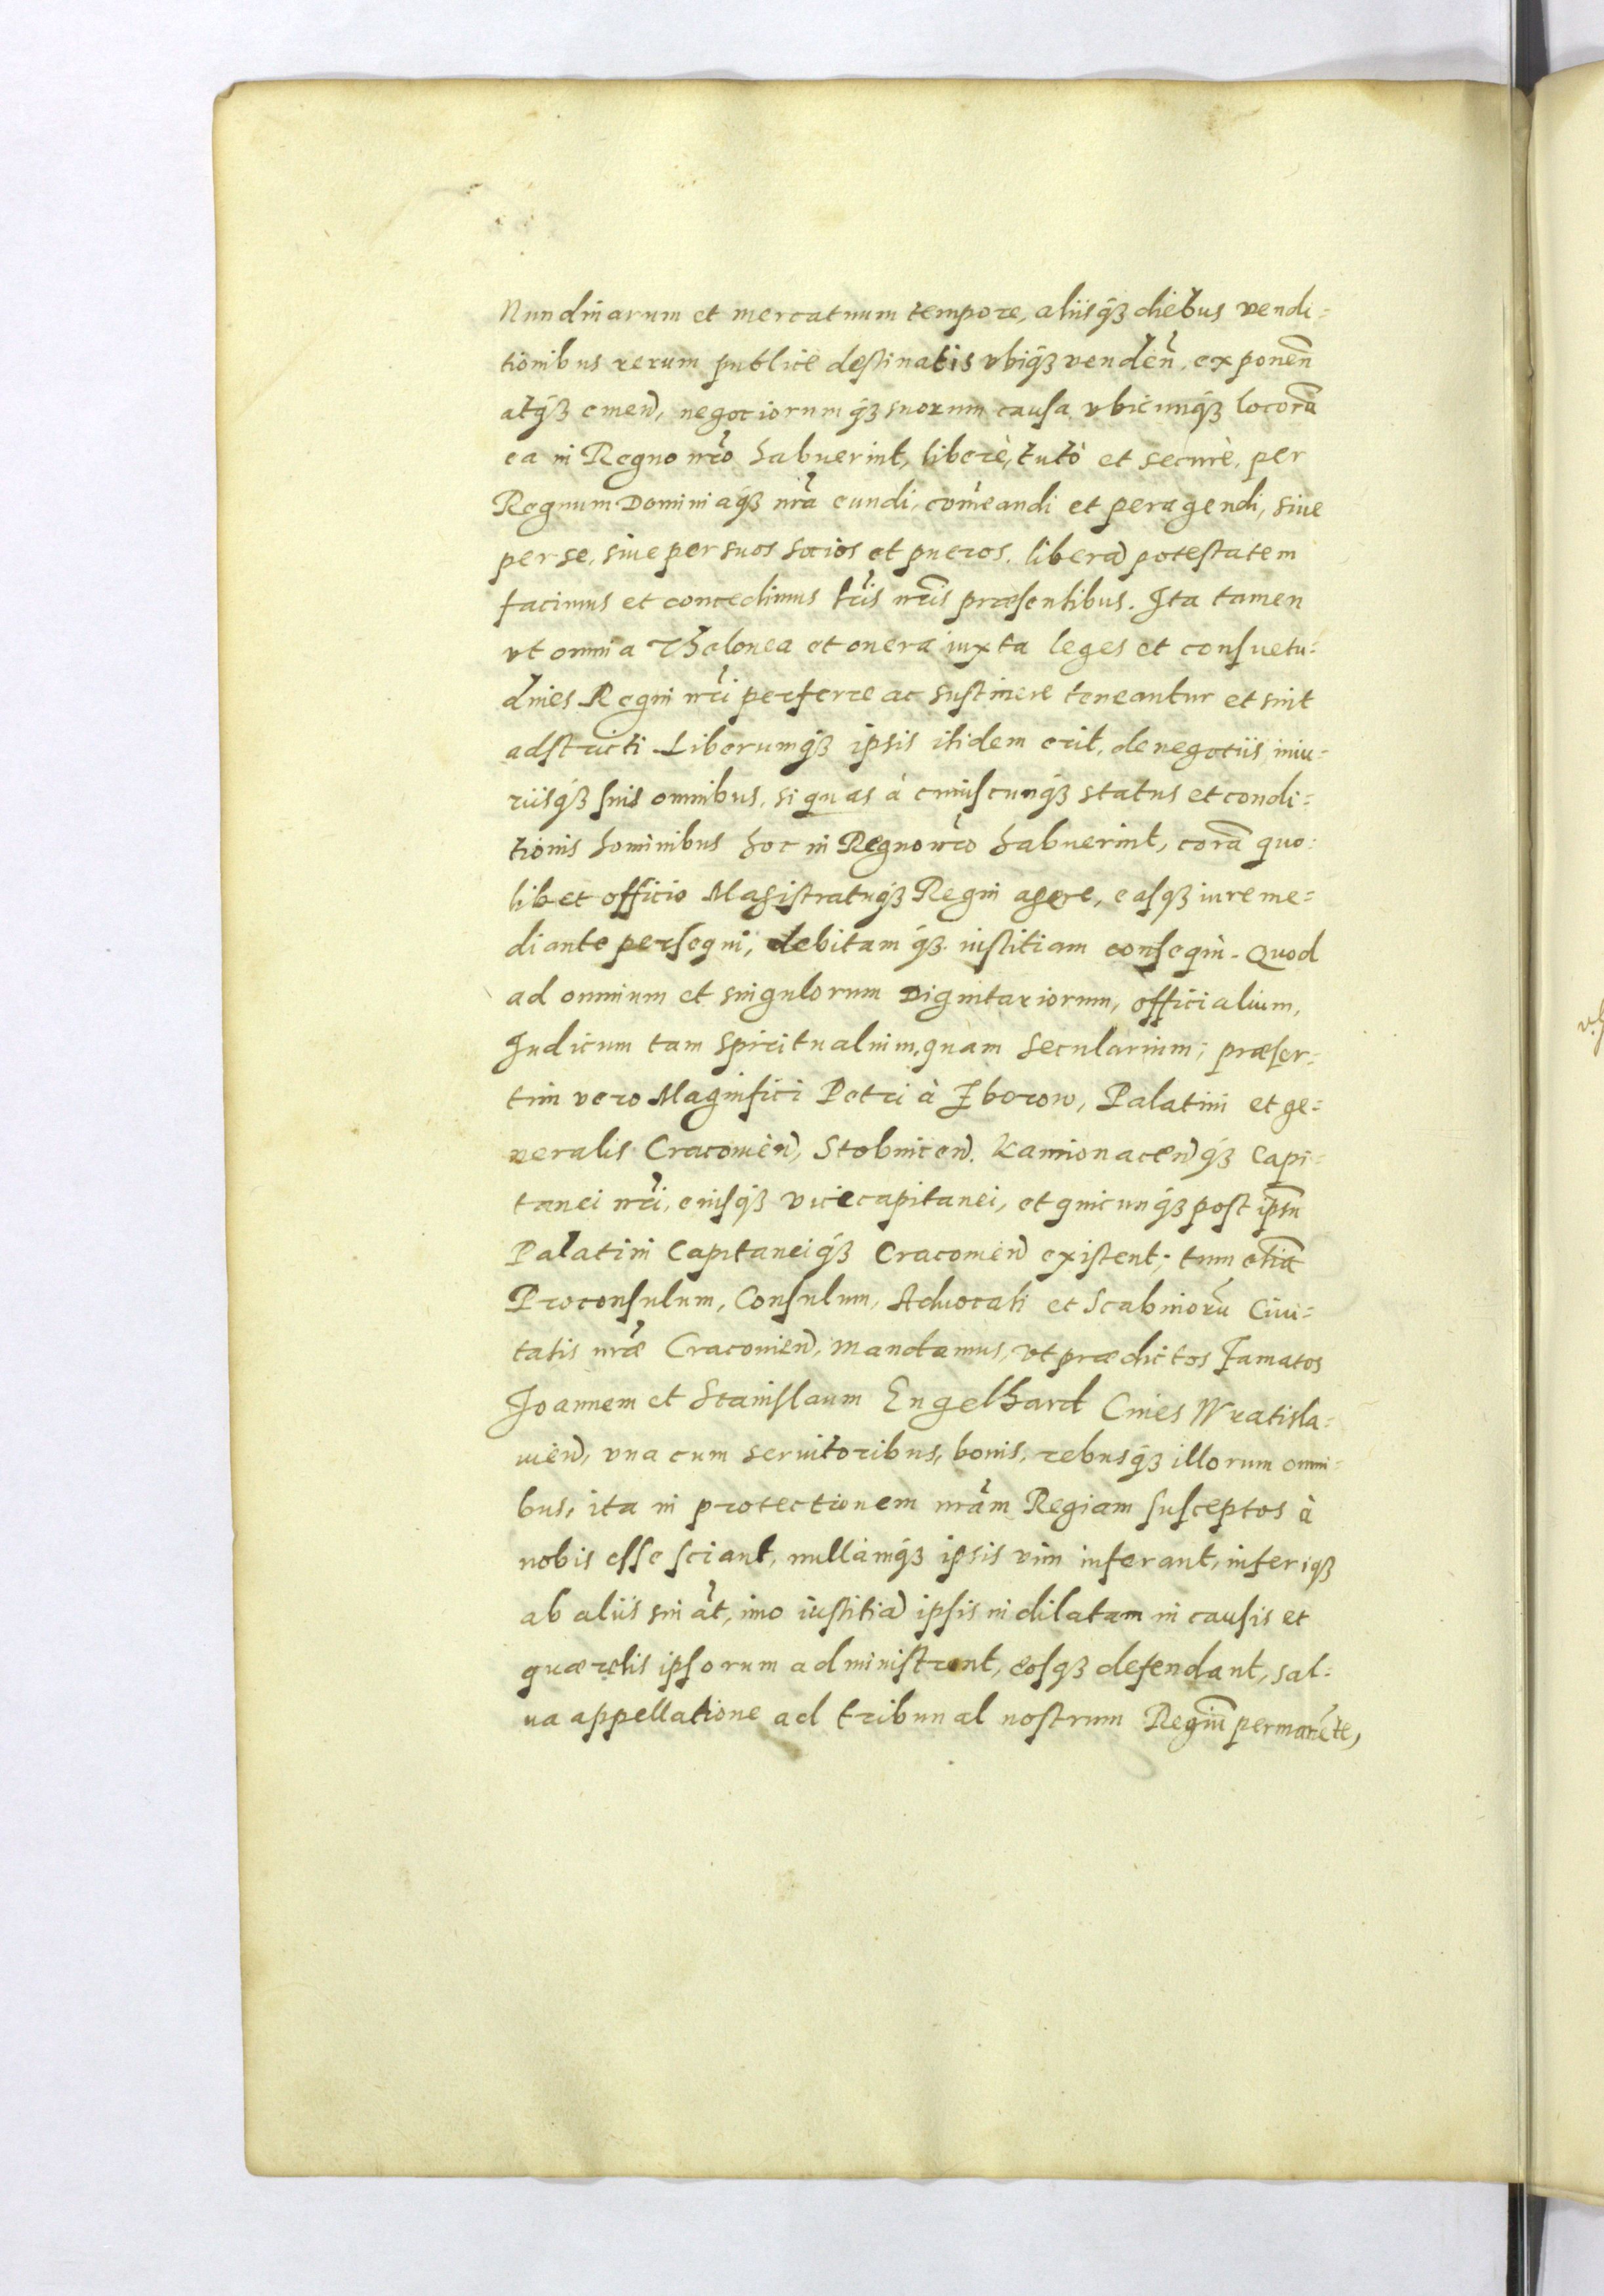 Nundinarum et mercatuum tempore, aliisq́ꝫ diebus vendi=
tionibus rerum publice destinatis vbiq́ꝫ venden̄, exponen̄
atq́ꝫ emen̄, negociorumq́ꝫ suorum causa vbicunq́ꝫ locorū
ea in Regno nr̄o habuerint, liberè, tutò et securè, per
Regnum Dominiaq́ꝫ nr̄a eundi, com̄eandi et peragendi, siue
per se, siue per suos socios et pueros, liberā potestatem
facimus et concedimus lr̄is nr̄is præsentibus. Ita tamen
vt omnia Thelonea et onera iuxta leges et consuetu=
dines Regni nr̄i perferre ac sustinere teneantur et sint
adstricti Liberumq́ꝫ ipsis itidem erit, de negotiis, iniu=
riisq́ꝫ suis omnibus, si quas à cuiuscunq́ꝫ status et condi=
tionis hominibus hoc in Regno nr̄o habuerint, corā quo=
libet officio Magistratuq́ꝫ Regni agere, easqꝫ iure me=
diante persequi, debitamq́ꝫ iustitiam consequi. Quod
ad omnium et singulorum Dignitariorum, officialium,
Iudicum tam spiritualium, quam secularium; præser=
tim vero Magnifici Petri à Zborow, Palatini et ge=
neralis Cracouien̄, Stobnicen̄. Kamionacen̄q́ꝫ Capi=
tanei nr̄i, eiusq́ꝫ vicecapitanei, et quicunq́ꝫ post ipsū
Palatini Capitaneiq́ꝫ Cracouien̄ existent; tum etiā
Proconsulum, Consulum, Aduocati et Scabinorū Ciui=
tatis nr̄æ Cracouien̄, mandamus, vt prædictos Famatos
Joannem et Stanislaum Engelhard Ciues Wratisla=
uien̄, vna cum seruitoribus, bonis, rebusq́ꝫ illorum omni=
bus, ita in protectionem nr̄am Regiam susceptos à
nobis esse sciant, nullamq́ꝫ ipsis vim inferant, inferiqꝫ
ab aliis sināt, imo iustitiā ipsis indilatam in causis et
quærelis ipsorum administrent, eosqꝫ defendant, sal=
ua appellatione ad tribunal nostrum Regiū permanēte,